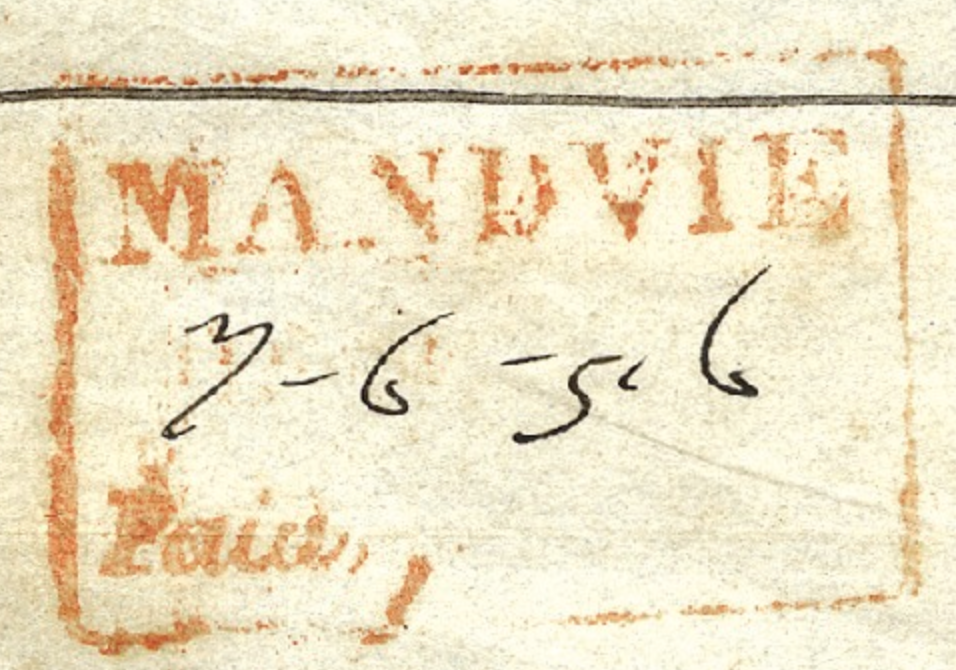 MANDVIE
7-6-56
Paid